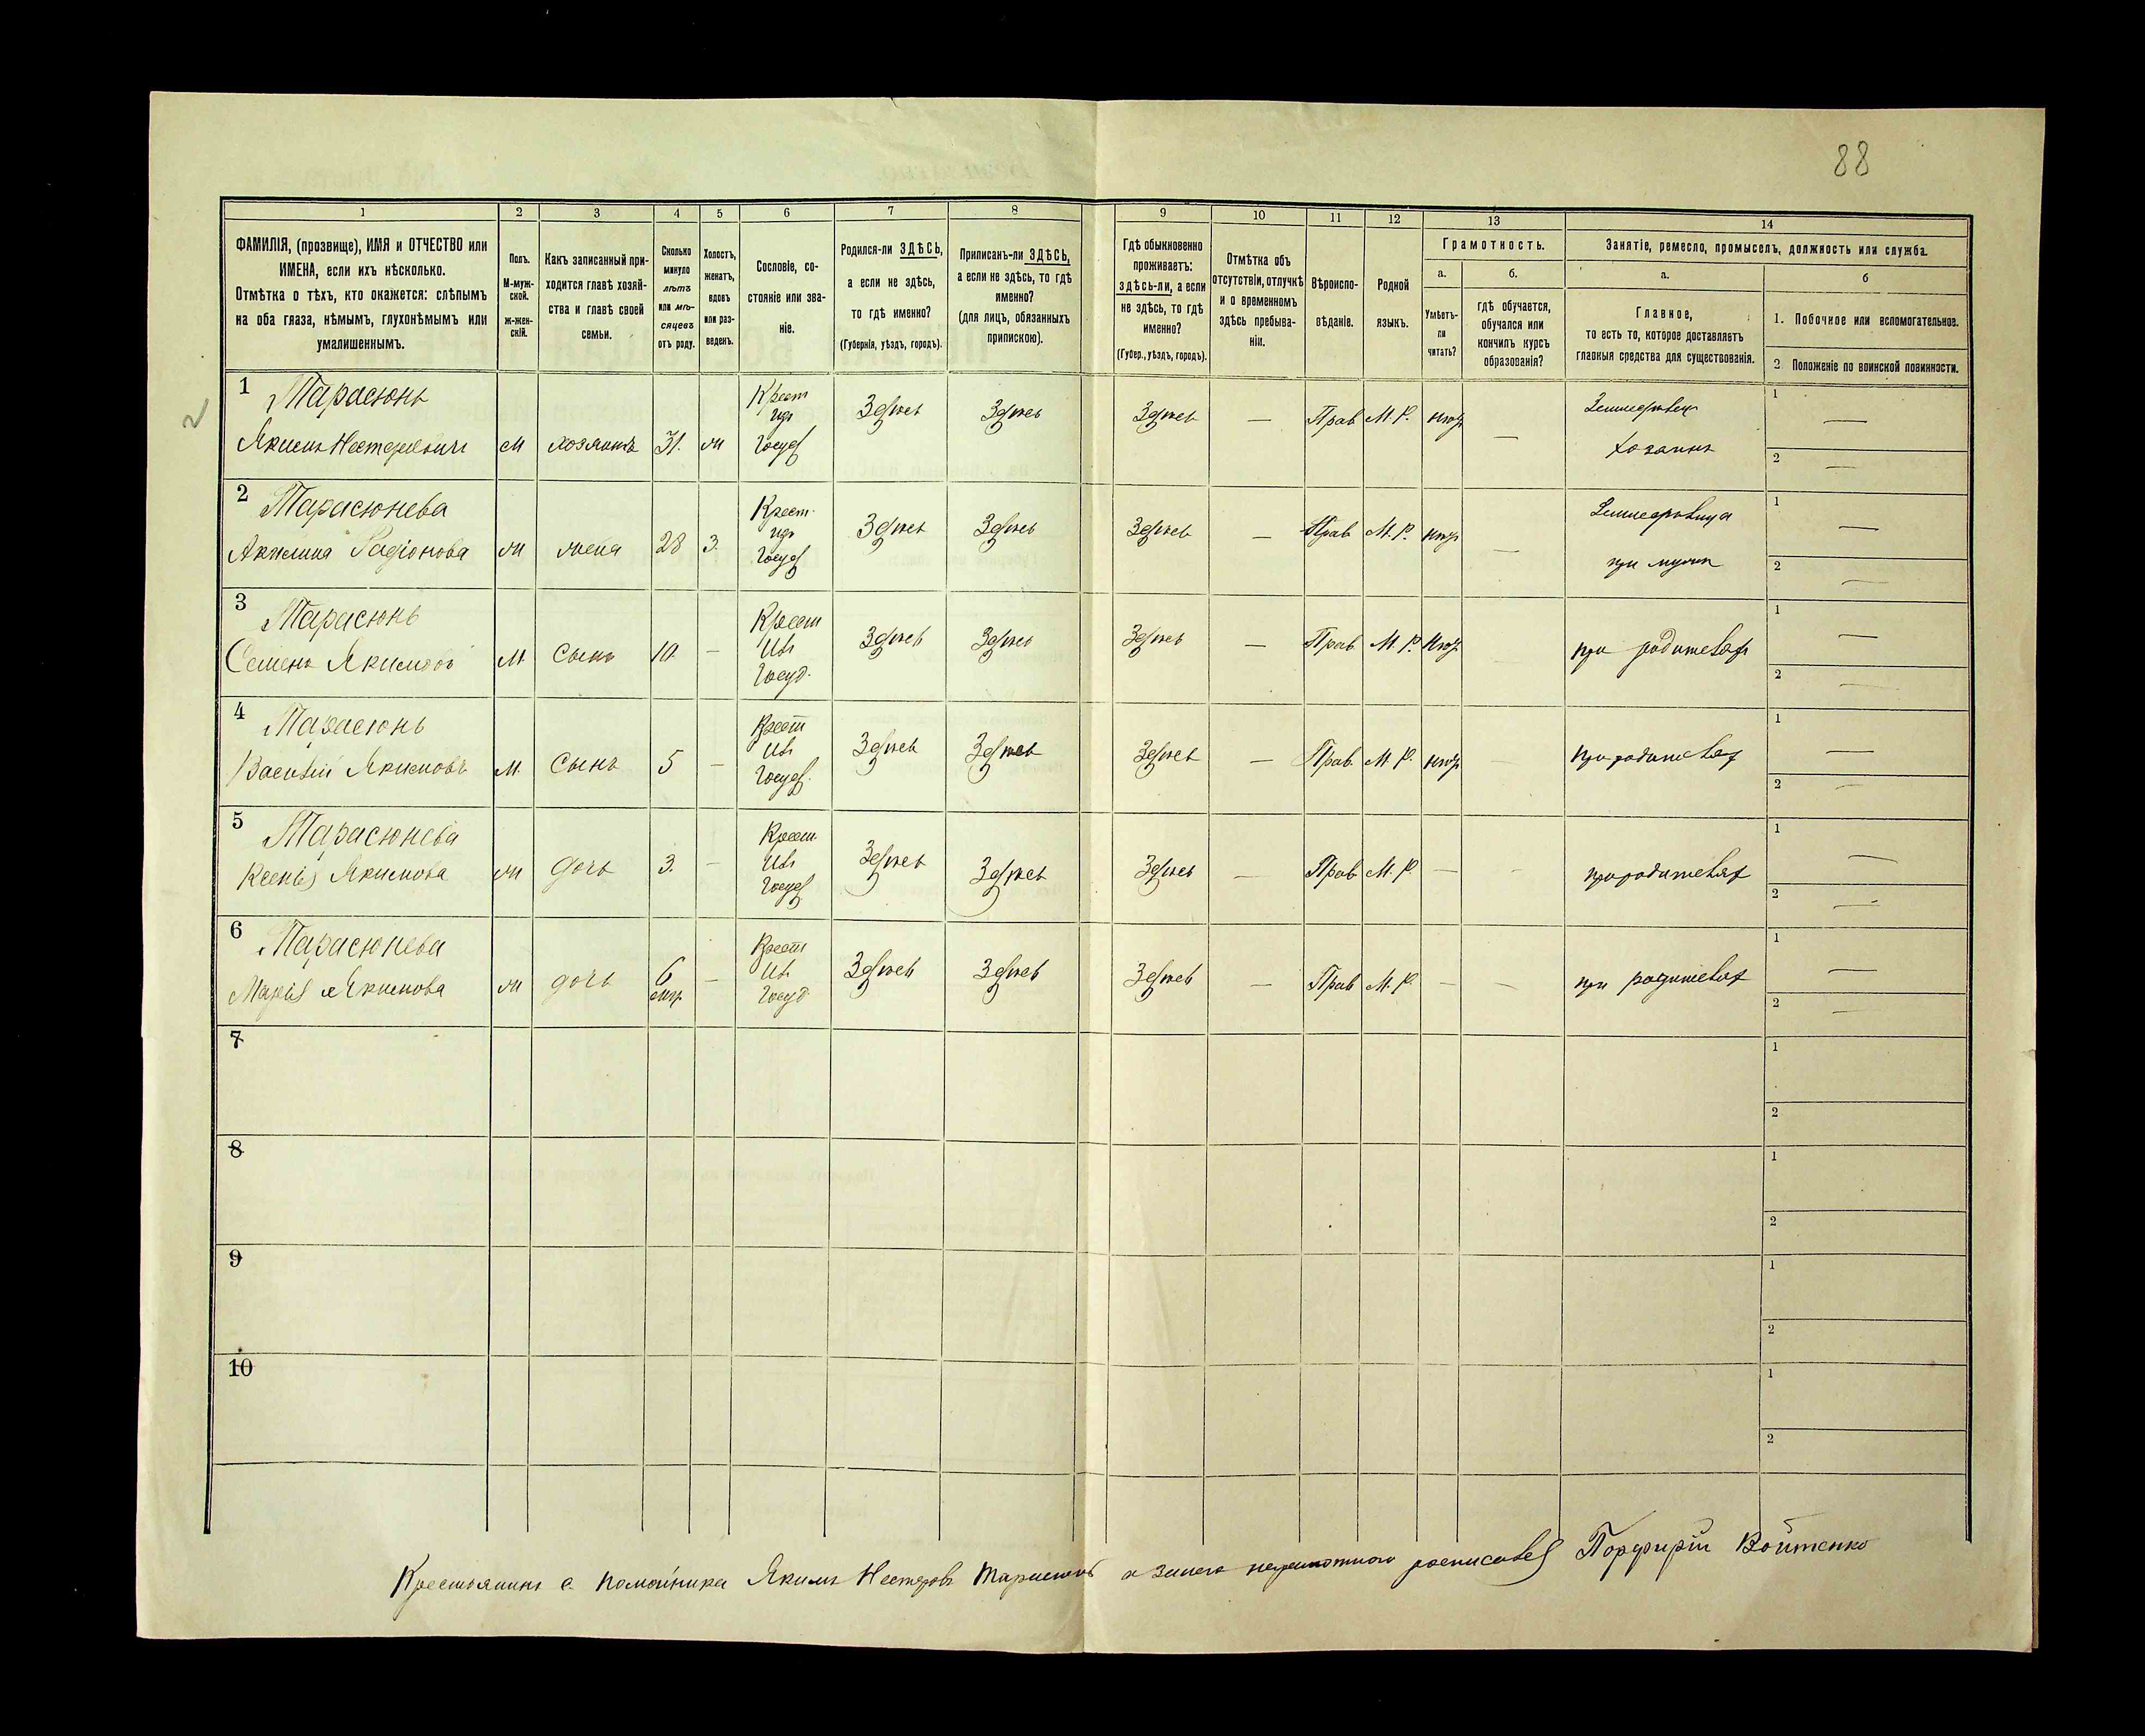 88
1
2
3
4
5
6
7
8
9
10
11
12
13
14
ФАМИЛІЯ, (прозвище), ИМЯ и ОТЧЕСТВО или
ИМЕНА, если ихъ нѣсколько.
Отмѣтка о тѣхъ, кто окажется: слѣпымъ
на оба глаза, нѣмымъ, глухонѣмымъ или
умалишеннымъ.
Полъ.
М-муж-
ской.
ж-жен-
скій.
Какъ записанный при-
ходится главѣ хозяй-
ства и главѣ своей
семьи.
Сколько
минуло
лѣтъ
или мѣ-
сяцевъ
отъ роду.
Холостъ,
женатъ,
вдовъ
или раз-
веденъ.
Сословіе, со-
стояніе или зва-
ніе.
Родился-ли ЗДѢСЬ,
а если не здѣсь,
то гдѣ именно?
(Губернія, уѣздъ, городъ).
Приписанъ-ли ЗДѢСЬ,
а если не здѣсь, то гдѣ
именно?
(для лицъ, обязанныхъ
припискою).
Гдѣ обыкновенно
проживаетъ:
здѣсь-ли, а если
не здѣсь, то гдѣ
именно?
(Губер., уѣздъ, городъ).
Отмѣтка объ
отсутствіи, отлучкѣ
и о временномъ
здѣсь пребыва-
ніи.
Вѣроиспо-
вѣданіе.
Родной
языкъ.
Грамотность.
а.
Умѣетъ-
ли
читать?
б.
гдѣ обучается,
обучался или
кончилъ курсъ
образованія?
Занятіе, ремесло, промыселъ, должность или служба.
а.
Главное,
то есть то, которое доставляетъ
главныя средства для существованія.
б
1. Побочное или вспомогательное.
2 Положеніе по воинской повинности.
2
1 Тарасюнь
Якимъ Нестеровичъ м хозяинъ 31. ж Крест изъ Госуд Здѣсь Здѣсь Здѣсь — Прав М. Р. негр — Земледѣлец хозаинъ 1 — 2 —
2 Тарасюнева
Акилина Радіонова ж жена 28 З. Крест. изъ Госуд Здѣсь Здѣсь Здѣсь — Прав М. Р. негр — при мужѣ 1 — 2 —
3 Тарасюнь
Семенъ Якимовъ М. Сынъ 10. — Крест Изъ Госуд. Здѣсь Здѣсь Здѣсь — Прав М. Р. Негр. при родителях 1 — 2 —
4 Тарасюнь
Василій Якимовъ М. Сынъ 5 — Крест Изъ Госуд. Здѣсь Здѣсь Здѣсь — Прав. М. Р. негр при родителях 1 — 2 —
5 Тарасюнева
Ксенія Якимова ж дочь 3. — Крест. Изъ Госуд Здѣсь Здѣсь Здѣсь — Прав М. Р. — — при родителях 1 — 2 —
6 Тарасюнева
Марія Якимова ж дочь 6 — Крест Изъ Госуд Здѣсь Здѣсь Здѣсь — Прав М. Р. — — при родителях 1 — 2 —
7 1 2
8 1 2
9 1 2
10 1 2
Крестьянинъ с. Помойника Якимъ Нестеровъ Тарасюнь а занего неграмотнаго росписався Порфирій Войтенко